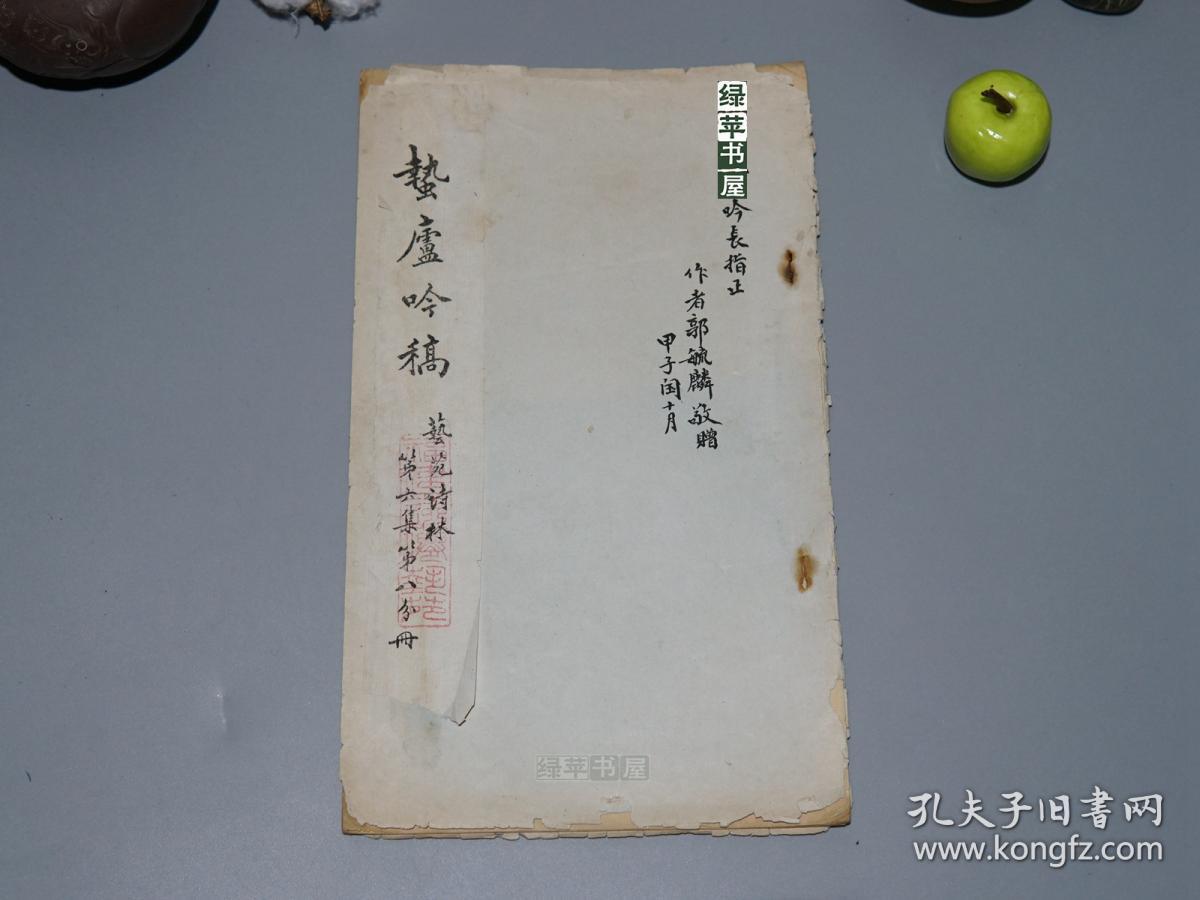 蟄廬吟稿
藝苑诗林
第六集第八分冊
绿苹书屋
吟長指正
作者郭毓麟敬贈
甲子闰十月
绿苹书屋
孔夫子旧书网
www.kongfz.com